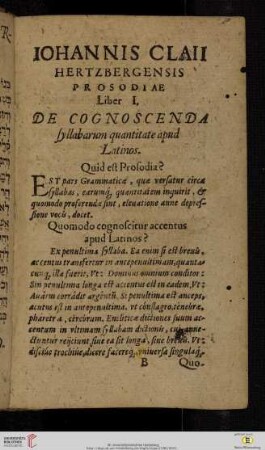 IOHANNIS CLAII
HERTZBERGENSIS
PROSODIAE
Liber I,
DE COGNOSCENDA
syllabarum quantitate apud
Latinos.
Quid est Prosodia?
EST pars Grammaticæ, quæ versatur circa
syllabas, earumq́; quantitatem inquirit, &
quomodo proferendæ sint, eleuatione anne depres-
sione vocis, docet.
Quomodo cognoscitur accentus
apud Latinos?
Ex penultima syllaba. Ea enim si est breuis,
accentus transfertur in antepenultimam, quanta-
cunq; illa fuerit, Vt: Dominus omnium conditor:
Sin penultima longa est accentus est in eadem, Vt:
Auárum cordáte argénti. Si penultima est anceps,
acutus est in antepenultima, vt cónflagro, ténebræ,
pháretra, cérebrum. Encliticæ dictiones suum ac-
centum in vltimam syllabam dictionis, cui
ctuntur reijciunt siue ea sit longa, siue breuis. Vt:
disclus trochiue, dicere faceteq́; vniuersa singulaq́;
B Quo.